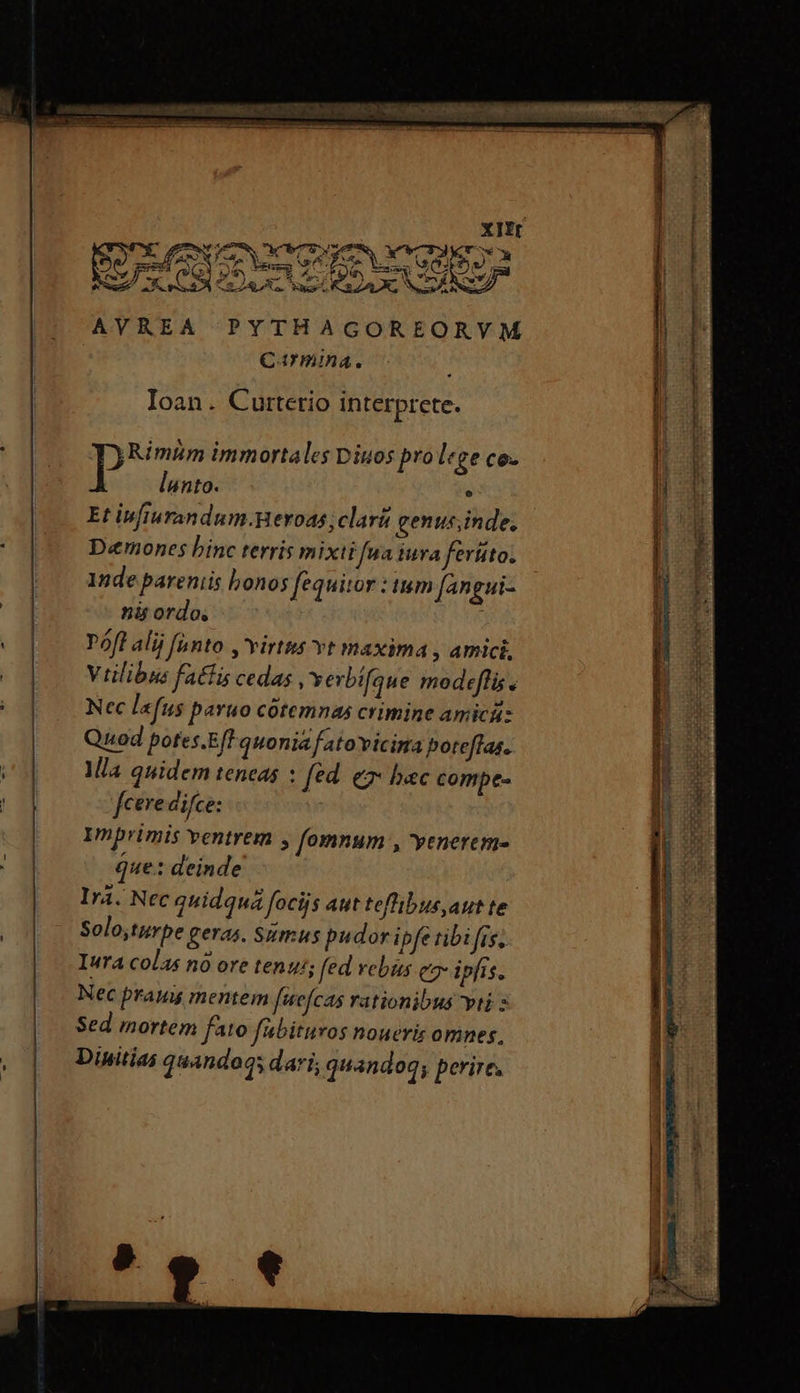 XIII
AVREA PYTHAGOREORVM
Carmina.
Ioan. Curterio interprete.
PRimùm immortales Diuos pro lege co-
lunto.
Et iusiurandum. Heroas, clarũ genus, inde.
Dæmones hinc terris mixti sua iura ferũto.
Inde parentis honos sequitor : tum sangui-
nis ordo.
Póst alij sunto , virtus vt maxima , amici,
Vtilibus factis cedas , verbísque modestis.
Nec læsus paruo cõtemnas crimine amicũ:
Quod potes. Est quoniã fato vicina potestas.
Illa quidem teneas : sed & hæc compe-
scere disce:
Imprimis ventrem , somnum , venerem-
que: deinde
Irã. Nec quidquã socijs aut testibus, aut te
Solo, turpe geras. Sũmus pudor ipse tibi sis.
Iura colas nõ ore tenus; sed rebus & ipsis.
Nec prauis mentem suescas rationibus vti :
Sed mortem fato subituros noueris omnes.
Diuitias quandoq; dari; quandoq; perire.